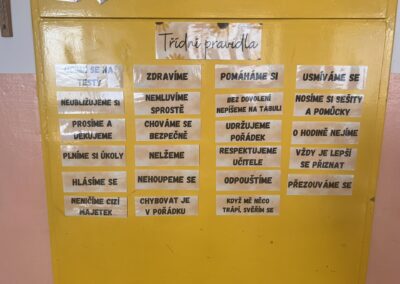 Třídní pravidla
UČÍME SE NA
TESTY
NEUBLIŽUJEME SI
PROSÍME A
DĚKUJEME
PLNÍME SI ÚKOLY
HLÁSÍME SE
NENIČÍME CIZÍ
MAJETEK
ZDRAVÍME
NEMLUVÍME
SPROSTĚ
CHOVÁME SE
BEZPEČNĚ
NELŽEME
NEHOUPEME SE
CHYBOVAT JE
V POŘÁDKU
POMÁHÁME SI
BEZ DOVOLENÍ
NEPÍŠEME NA TABULI
UDRŽUJEME
POŘÁDEK
RESPEKTUJEME
UČITELE
ODPOUŠTÍME
KDYŽ MĚ NĚCO
TRÁPÍ, SVĚŘÍM SE
USMÍVÁME SE
NOSÍME SI SEŠITY
A POMŮCKY
O HODINĚ NEJÍME
VŽDY JE LEPŠÍ
SE PŘIZNAT
PŘEZOUVÁME SE